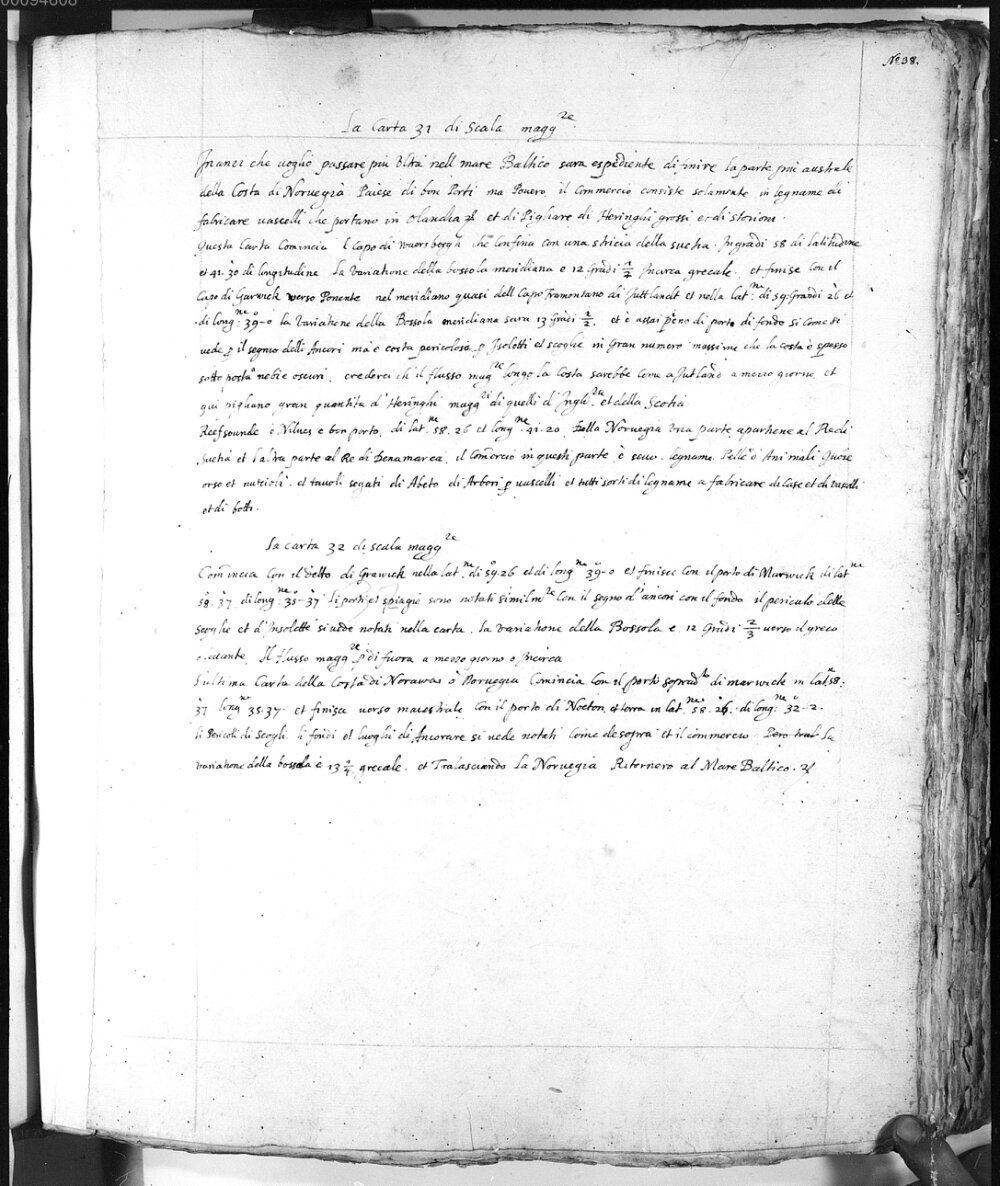 00094608
No 38.
La Carta 31 di Scala magg.re
Inanzi che voglio passare piu oltra nell mare Baltico sara espediente di finire la parte piu australe
della Costa di Norvegia Paiese di bon Porti ma Povero il Commercio consiste solamente in legname di
fabricare vascelli che portano in Olandia et di Pigliare di Heringhi grossi et di storioni.
Questa Carta Comincia Capo di Waersbergh che Confina con una stricia della suetia. In gradi 58 di latitudine
et 41. 30 di longitudine. La variatione della bossola meridiana e 12 Gradi Incirca grecale. et finise Con il
Capo di Garwick verso Ponente nel meridiano quasi dell Capo Tramontano di Juttlandt et nella lat.ne di 59 Grandi 26 et
di long.ne 39-0 la Variatione della Bossola meridiana sara 13 Gradi 1/2. et è assai pieno di porti di fondo si Come si
vede p il segnio delli Ancori ma è costa pericolosa p Isoletti et scoglie in Gran numero massime che la costa è spesso
sotto posta nebie oscuri. crederei ch'il flusso mag.re longo la Costa sarebbe Come a Jutland a mezzo giorno. et
qui pigliano gran quantita d'Heringhi magg.ri di quelli d'Inghi.ra et della Scotia
Reefsounde è Nilnes e bon porto. di lat.ne 58. 26 et long.ne 41. 20. Della Norvegia Una parte apartiene al Re di
Suetia et l'altra parte al Re di Denamarca. il Comercio in questi parte è legname Pelle d'Animali
orse et et tavoli segati di Abeto di Arbori p vascelli et tutti sorti di legname a fabricare di Case et di vascelli
et di botti.
La carta 32 di scala magg.re
Comincia Con il detto di Grawick nella lat.ne di 59. 26 et di long.ne 39-0 et finisce Con il porto di Marwick di lat.ne
58. 37. di long.ne 35-37. li porti et spiagie sono notati similm.te Con il segno d'ancori con il fondo il periculo delle
Scoglie et d'Insolette si vede notati nella carta. La variatione della Bossola e 12 Gradi 2/3 verso il greco
Il flusso magg.re p di fuora a mezzo giorno o Incirca
L'ultima Carta della Costa di Norawas ò Norvegia Comincia Con il porto soprad.to di merwick in lat.ne 58:
37 long.ne 35.37. et finisce verso maestrale Con il porto di Nocton et terra in lat.ne 58. 26. di long.ne 32-2.
li Pericoli di Scogli li fondi et luoghi di Ancorare si vede notati Come desopra et il commercio. La
variatione della bossola è 13 grecale. et Tralasciando La Norvegia Ritornero al Mare Baltico.